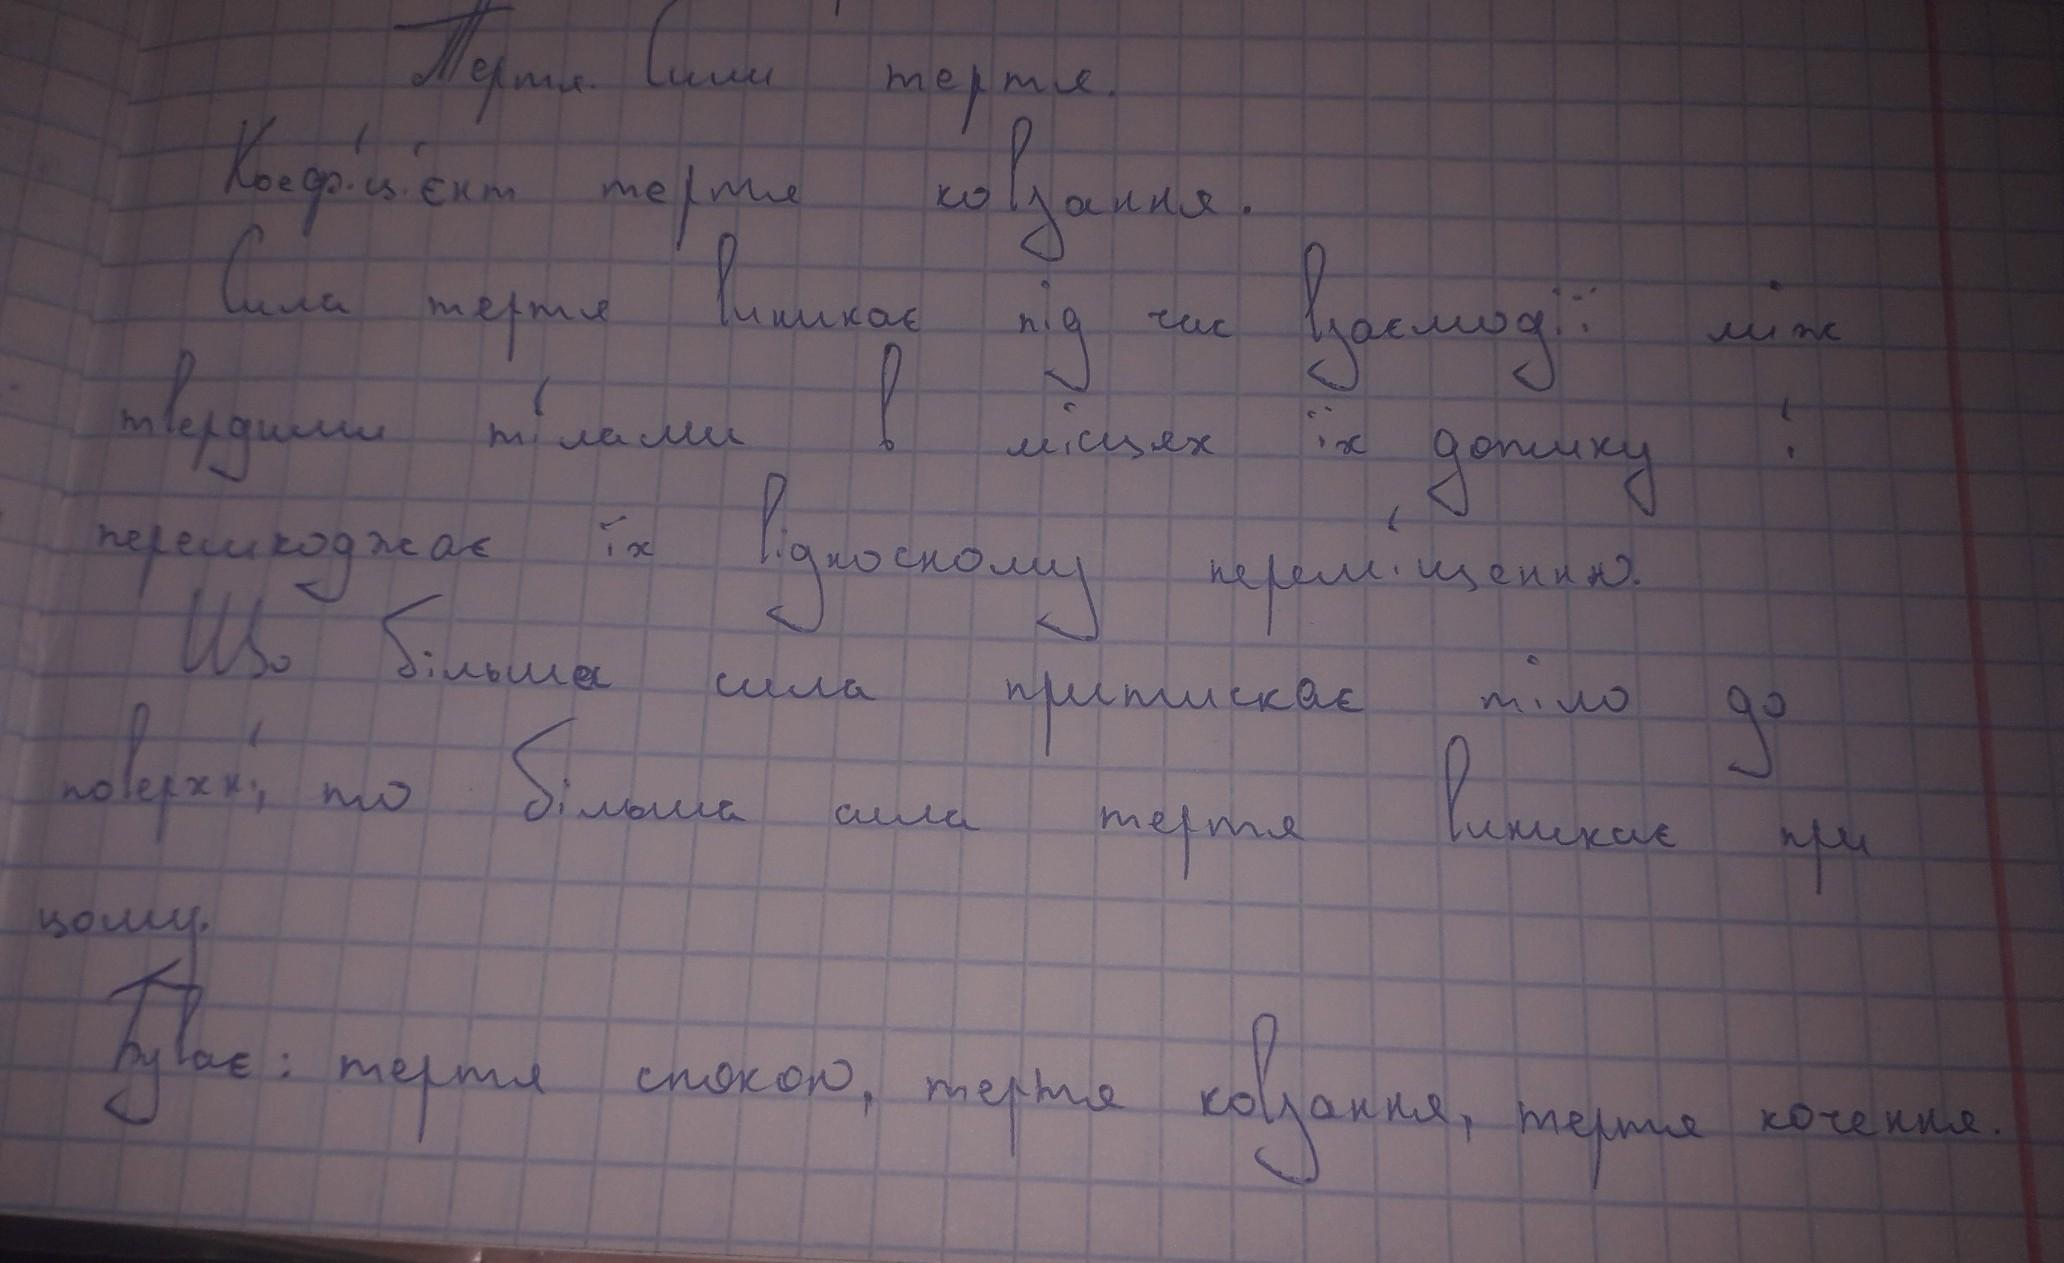 Тертя. Сили тертя.
Коефіцієнт тертя ковзання.
Сила тертя виникає під час взаємодії між
твердими тілами в місцях їх дотику і
перешкоджає їх відносному переміщенню.
Що більша сила притискає тіло до
поверхні, то більша сила тертя виникає при
цому.
Буває: тертя спокою, тертя ковзання, тертя кочення.